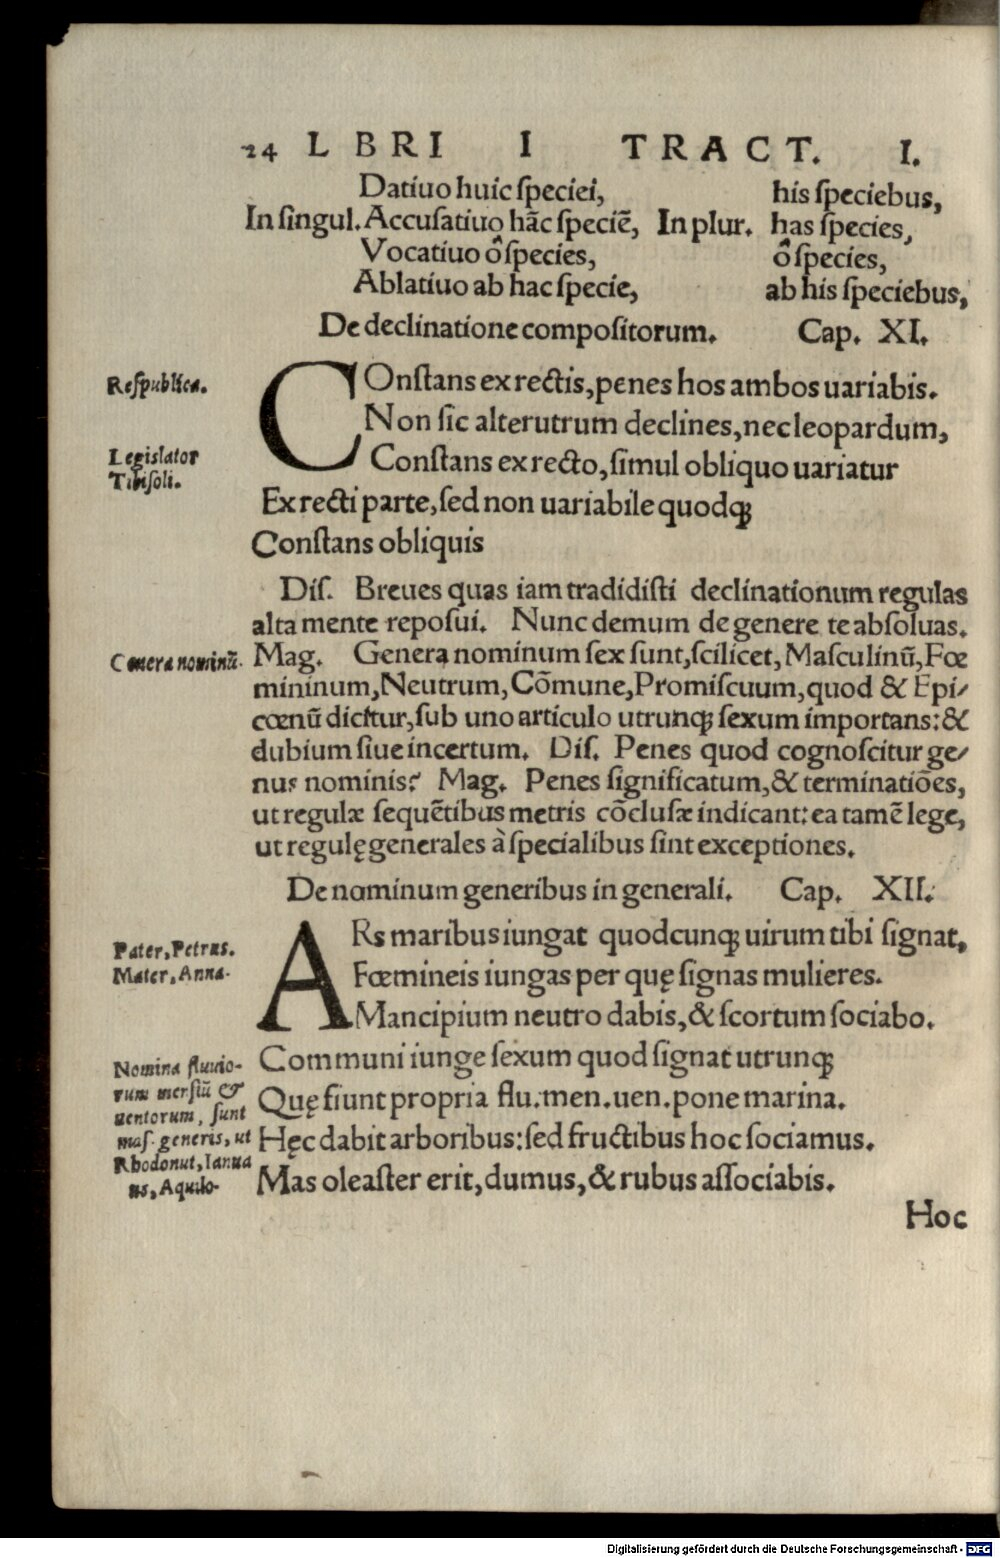 24 LBRI I TRACT. I.
Datiuo huic ſpeciei, his ſpeciebus,
In ſingul. Accuſatiuo hāc ſpeciē, In plur. has ſpecies,
Vocatiuo ô ſpecies, ô ſpecies,
Ablatiuo ab hac ſpecie, ab his ſpeciebus,
De declinatione compoſitorum. Cap. XI.
Reſpublica.
COnſtans ex rectis, penes hos ambos uariabis.
Non ſic alterutrum declines, nec leopardum,
Legislator
Conſtans ex recto, ſimul obliquo uariatur
Tibiſoli.
Ex recti parte, ſed non uariabile quodq;
Conſtans obliquis
Diſ. Breues quas iam tradidiſti declinationum regulas
alta mente repoſui. Nunc demum de genere te abſoluas.
Genera nominū.
Mag. Genera nominum ſex ſunt, ſcilicet, Maſculinū, Fœ
mininum, Neutrum, Cōmune, Promiſcuum, quod & Epi/
cœnū dicitur, ſub uno articulo utrunq; ſexum importans: &
dubium ſiue incertum. Diſ. Penes quod cognoſcitur ge/
nus nominis? Mag. Penes ſignificatum, & terminatiōes,
ut regulæ ſequētibus metris cōcluſæ indicant: ea tamē lege,
ut regulę generales à ſpecialibus ſint exceptiones.
De nominum generibus in generali. Cap. XII.
Pater, Petrus.
ARs maribus iungat quodcunq; uirum tibi ſignat,
Mater, Anna.
Fœmineis iungas per quę ſignas mulieres.
Mancipium neutro dabis, & ſcortum ſociabo.
Communi iunge ſexum quod ſignat utrunq;
Nomina fluuio-
rum menſiū &
uentorum, ſunt
maſ. generis, ut
Rhodonut, Ianua
us, Aquilo.
Quę fiunt propria flu. men. uen. pone marina.
Hęc dabit arboribus: ſed fructibus hoc ſociamus.
Mas oleaſter erit, dumus, & rubus aſſociabis.
Hoc
Digitalisierung gefördert durch die Deutsche Forschungsgemeinschaft - DFG